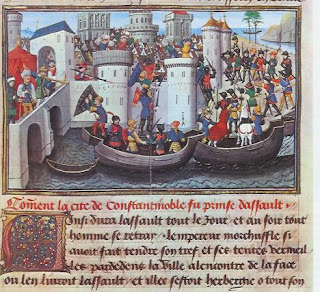 Comẽnt la cite de Constantinoble fu prinse dassault
Ainsi dura lassault tout le jour et au soir tout
homme se retrai. Lempereur morchuffle si
avoit fait tendre son tref et ses tentes vermeil
les pardedens la ville alencontre de la face
ou len livroit lassault et illec sestoit herbergie o tout son